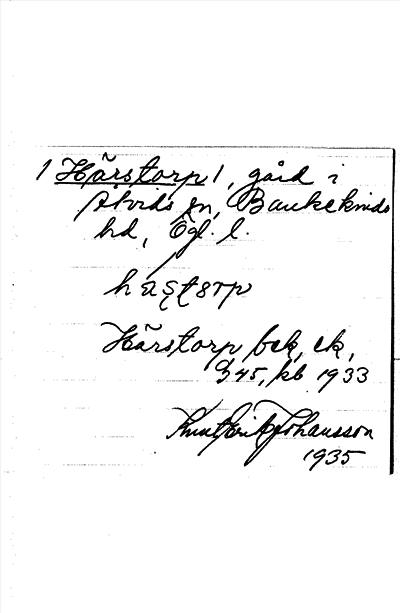 1 Hårstorp 1, gård i
Åtvids sn, Bankekinds
hd, Ögl. l.
hasstorp
Hårstorp bek, ek,
G 45, kb 1933
Knut Erik Johansson
1935